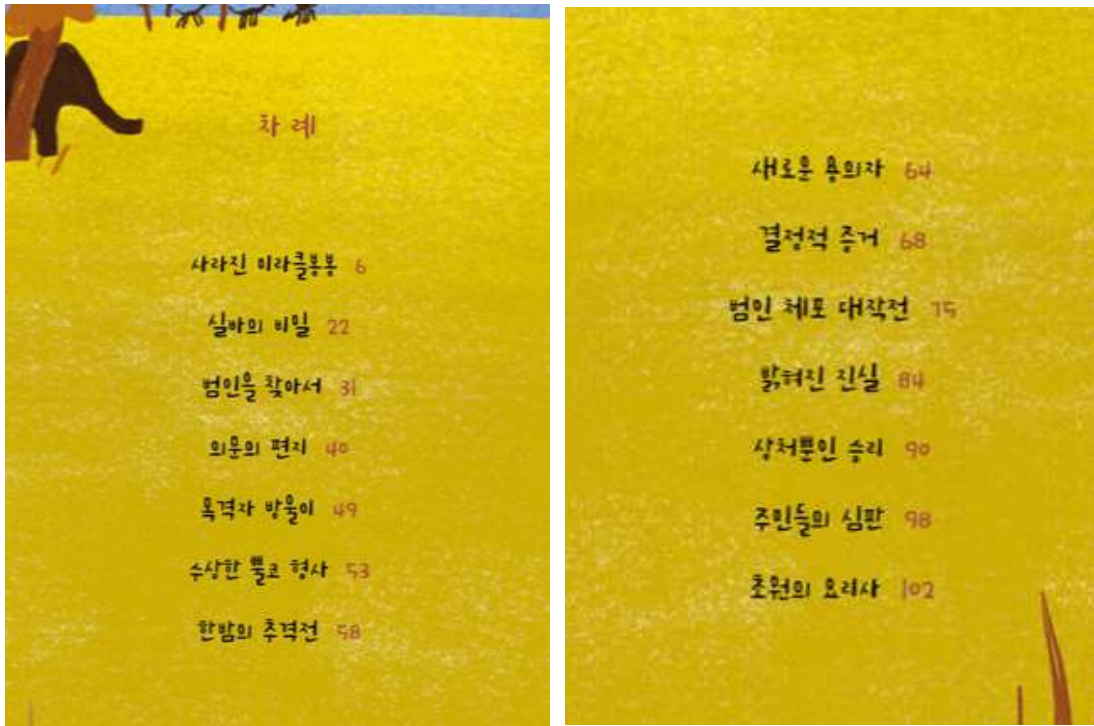 차례
사라진 미라클봉봉 6
실바의 비밀 22
범인을 찾아서 31
의문의 편지 40
목격자 방울이 49
수상한 뿔코 형사 53
한밤의 추격전 58
새로운 용의자 64
결정적 증거 68
범인 체포 대작전 75
밝혀진 진실 84
상처뿐인 승리 90
주민들의 심판 98
초원의 요리사 102